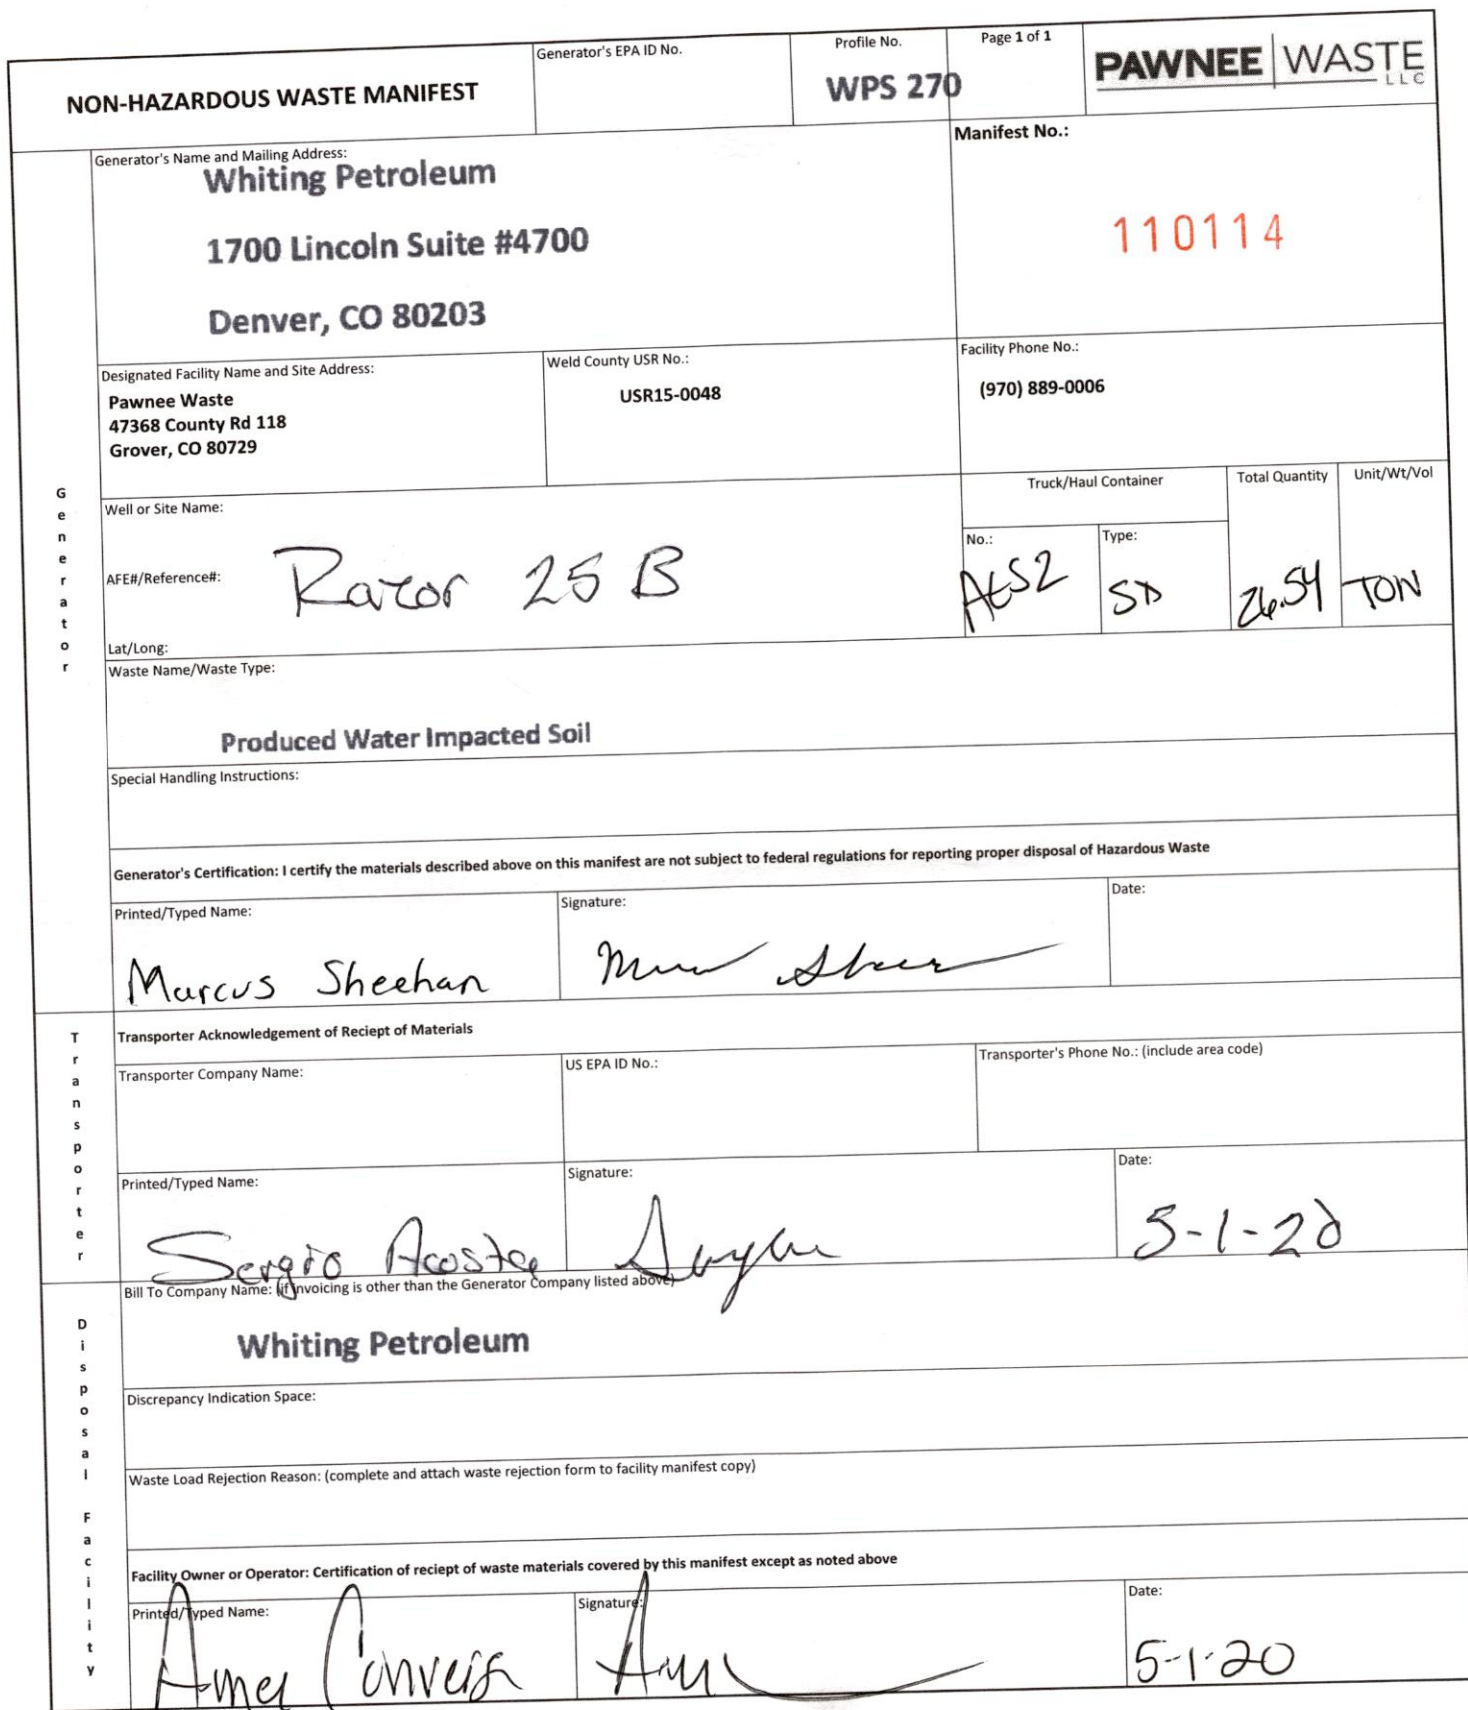 NON-HAZARDOUS WASTE MANIFEST
Generator's EPA ID No.
Profile No.
WPS 270
Page 1 of 1
PAWNEE WASTE LLC
Generator's Name and Mailing Address:
Whiting Petroleum
1700 Lincoln Suite #4700
Denver, CO 80203
Manifest No.:
110114
Designated Facility Name and Site Address:
Pawnee Waste
47368 County Rd 118
Grover, CO 80729
Weld County USR No.:
USR15-0048
Facility Phone No.:
(970) 889-0006
Generator
Well or Site Name:
AFE#/Reference#:
Razor 25 B
Lat/Long:
Truck/Haul Container
No.:
Type:
SD
Total Quantity
26.54
Unit/Wt/Vol
TON
Waste Name/Waste Type:
Produced Water Impacted Soil
Special Handling Instructions:
Generator's Certification: I certify the materials described above on this manifest are not subject to federal regulations for reporting proper disposal of Hazardous Waste
Printed/Typed Name:
Marcus Sheehan
Signature:
Date:
Transporter
Transporter Acknowledgement of Reciept of Materials
Transporter Company Name:
US EPA ID No.:
Transporter's Phone No.: (include area code)
Printed/Typed Name:
Sergio Acosta
Signature:
Date:
5-1-20
Disposal Facility
Bill To Company Name: (if invoicing is other than the Generator Company listed above)
Whiting Petroleum
Discrepancy Indication Space:
Waste Load Rejection Reason: (complete and attach waste rejection form to facility manifest copy)
Facility Owner or Operator: Certification of reciept of waste materials covered by this manifest except as noted above
Printed/Typed Name:
Signature:
Date:
5-1-20